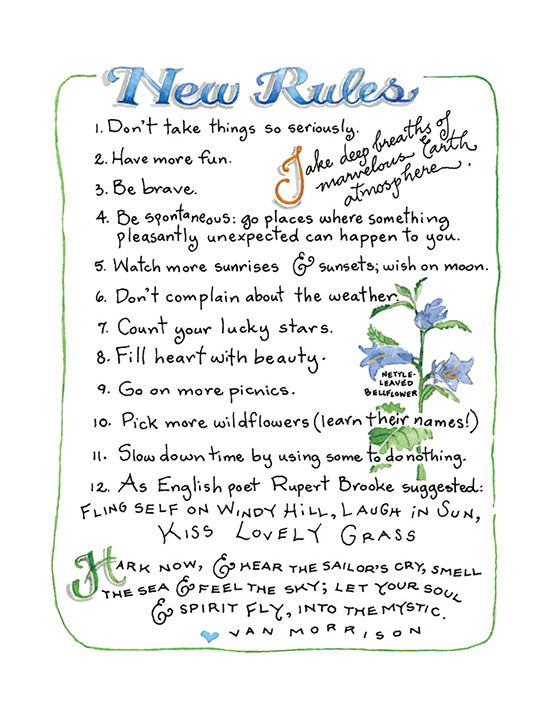 New Rules
1. Don't take things so seriously.
Take deep breaths of
marvelous Earth
atmosphere.
2. Have more fun.
3. Be brave.
4. Be spontaneous: go places where something
pleasantly unexpected can happen to you.
5. Watch more sunrises & sunsets; wish on moon.
6. Don't complain about the weather.
7. Count your lucky stars.
8. Fill heart with beauty.
NETTLE-
LEAVED
BELLFLOWER
9. Go on more picnics.
10. Pick more wildflowers (learn their names!)
11. Slow down time by using some to do nothing.
12. As English poet Rupert Brooke suggested:
FLING SELF ON WINDY HILL, LAUGH IN SUN,
KISS LOVELY GRASS
HARK NOW, & HEAR THE SAILOR'S CRY, SMELL
THE SEA & FEEL THE SKY; LET YOUR SOUL
& SPIRIT FLY, INTO THE MYSTIC.
VAN MORRISON